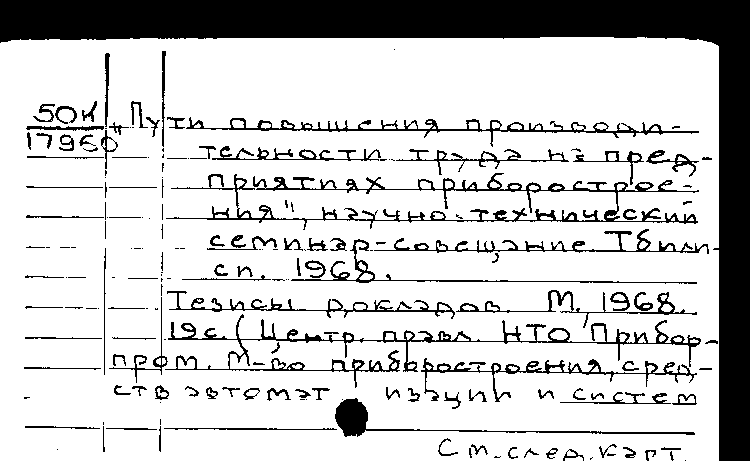 50К „Пути повышения производи-
17960
тельности труда на пред-
приятиях приборострое-
ния", научно-технический
семинар-совещание. Тбили-
си. 1968.
Тезисы докладов. М., 1968.
19с. (Центр. правл. НТО Прибор-
пром. М-во приборостроения, сред-
ств автоматизации и систем
См. след. карт.